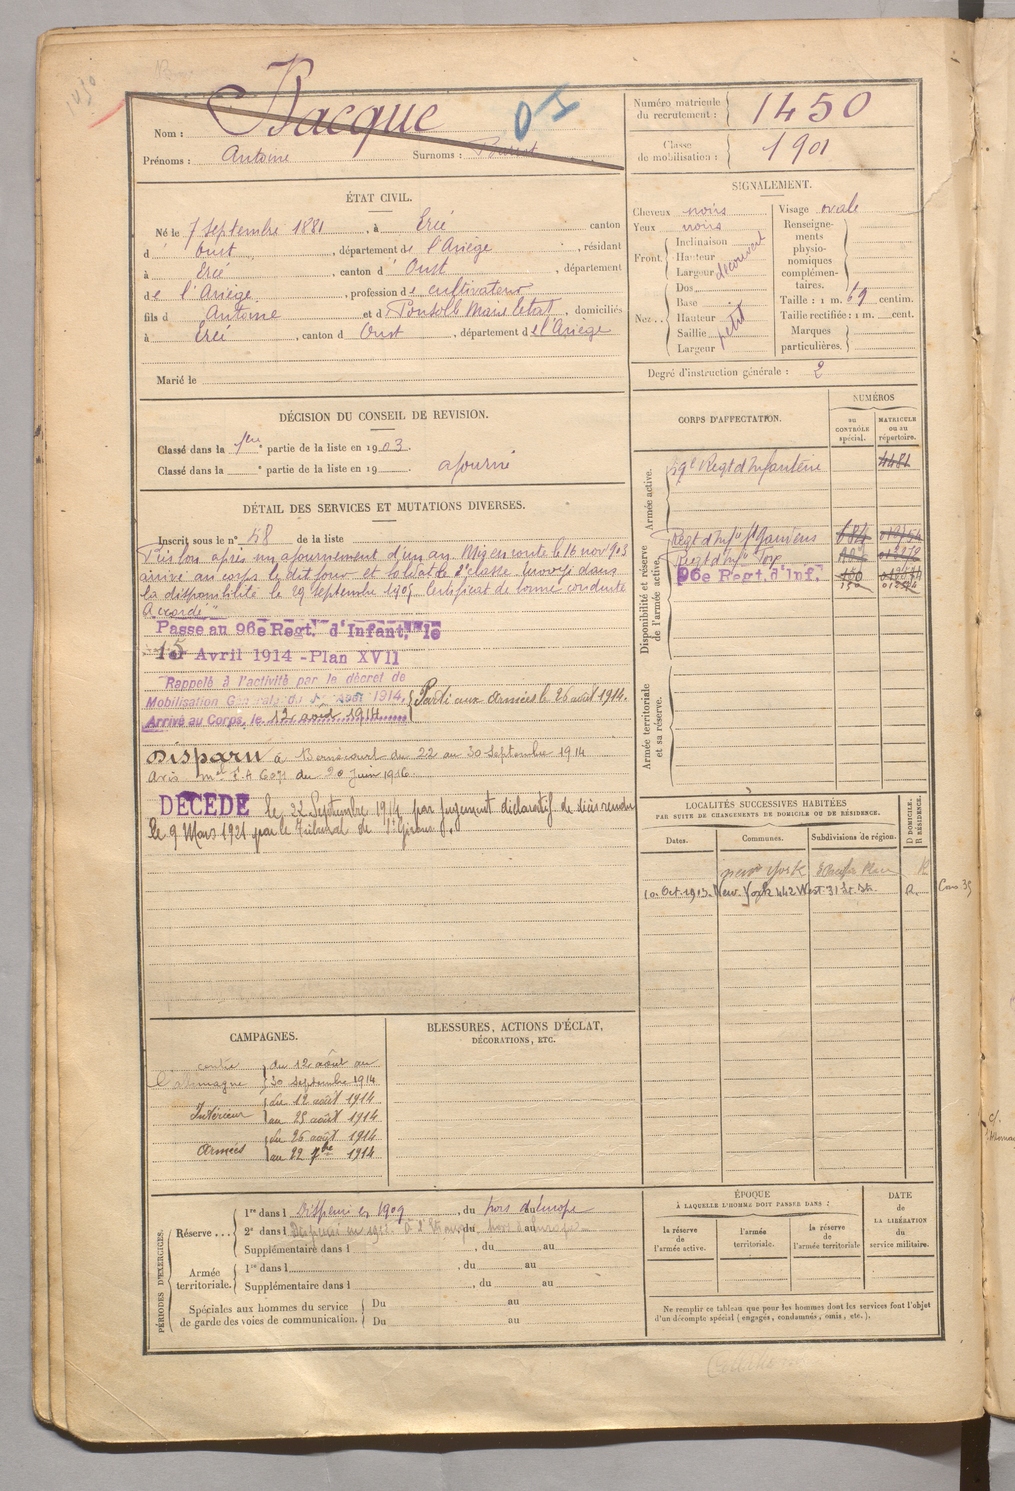 1450
Nom : Bacque
01
Prénoms : Antoine Surnoms :
Numéro matricule du recrutement : 1450
Classe de mobilisation : 1901
ÉTAT CIVIL.
Né le 7 Septembre 1881, à Ercé canton
d' Oust, département de l'Ariège, résidant
à Ercé, canton d' Oust, département
de l'Ariège, profession de cultivateur
fils d' Antoine et d Ponsolle Marie, domiciliés
à Ercé, canton d Oust, département de l'Ariège
Marié le
SIGNALEMENT.
Cheveux noirs
Yeux noirs
Front. Inclinaison
Hauteur
Largeur découvert
Nez.. Dos
Base
Hauteur petit
Saillie
Largeur
Visage ovale
Renseigne-
ments
physio-
nomiques
complémen-
taires.
Taille : 1 m. 69 centim.
Taille rectifiée : 1 m. cent.
Marques
particulières.
Degré d'instruction générale : 2
DÉCISION DU CONSEIL DE REVISION.
Classé dans la 1ère partie de la liste en 1903.
Classé dans la ° partie de la liste en 19
ajourné
CORPS D'AFFECTATION.
NUMÉROS
au CONTRÔLE spécial.
MATRICULE ou au répertoire.
Armée active.
59e Régt d'Infanterie 4481
Disponibilité et réserve de l'armée active.
Régt d'Infie St Gaudens 684
Régt d'Infie
96e Regt. d'Inf.
150
Armée territoriale et sa réserve.
DÉTAIL DES SERVICES ET MUTATIONS DIVERSES.
Inscrit sous le n° 58 de la liste
Pris bon après un ajournement d'un an. Mis en route le 16 nov 1903
arrivé au corps le dit jour et soldat de 2e classe. Envoyé dans
la disponibilité le 29 septembre 1905 Certificat de bonne conduite
"Accordé"
Passe au 96e Regt. d'Infant. le
15 Avril 1914 - Plan XVII
Rappelé à l'activité par le décret de
Mobilisation Générale du 1er août 1914.
Arrivé au Corps, le 12 août 1914
Parti aux Armées le 26 août 1914.
Disparu à Bernécourt du 22 au 30 Septembre 1914
Avis mel F.A 6071 du 20 Juin 1916.
DÉCÉDÉ le 22 Septembre 1914 par jugement déclaratif de décès rendu
le 9 Mars 1921 par le Tribunal de St Girons.
LOCALITÉS SUCCESSIVES HABITÉES
PAR SUITE DE CHANGEMENTS DE DOMICILE OU DE RÉSIDENCE.
Dates. Communes. Subdivisions de région. D DOMICILE. R RÉSIDENCE.
New York R
10. Oct. 1913. New. York 442 West. 31 St. Str.
Cons. 35
CAMPAGNES.
contre l'Allemagne du 12 août au
30 septembre 1914
Intérieur du 12 août 1914
au 25 août 1914
Armées du 26 août 1914
au 22 7bre 1914
BLESSURES, ACTIONS D'ÉCLAT,
DÉCORATIONS, ETC.
PÉRIODES D'EXERCICES.
Réserve... 1re dans l Dispensé en 1909, du hors d'Europe
2e dans l du au
Supplémentaire dans l , du au
Armée territoriale. 1re dans l , du au
Supplémentaire dans l , du au
Spéciales aux hommes du service Du au
de garde des voies de communication. Du au
ÉPOQUE
À LAQUELLE L'HOMME DOIT PASSER DANS :
la réserve de l'armée active.
l'armée territoriale.
la réserve de l'armée territoriale
DATE DE LA LIBÉRATION du service militaire.
Ne remplir ce tableau que pour les hommes dont les services font l'objet
d'un décompte spécial (engagés, condamnés, omis, etc.).